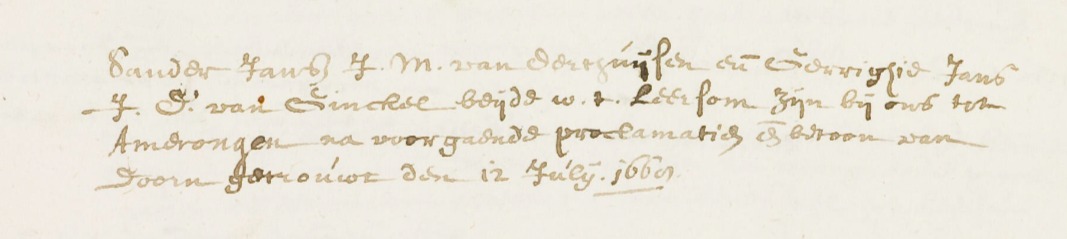 Sander Jansz J. M. van Derthuijsen en̄ Gerrigjie Jans
J. D. van Ginckel beijde w. t. Leersom zijn bij ons tot
Amerongen na voorgaende proclamatien en̄ betoon van
Doorn getrouwt den 12 Julij. 1669